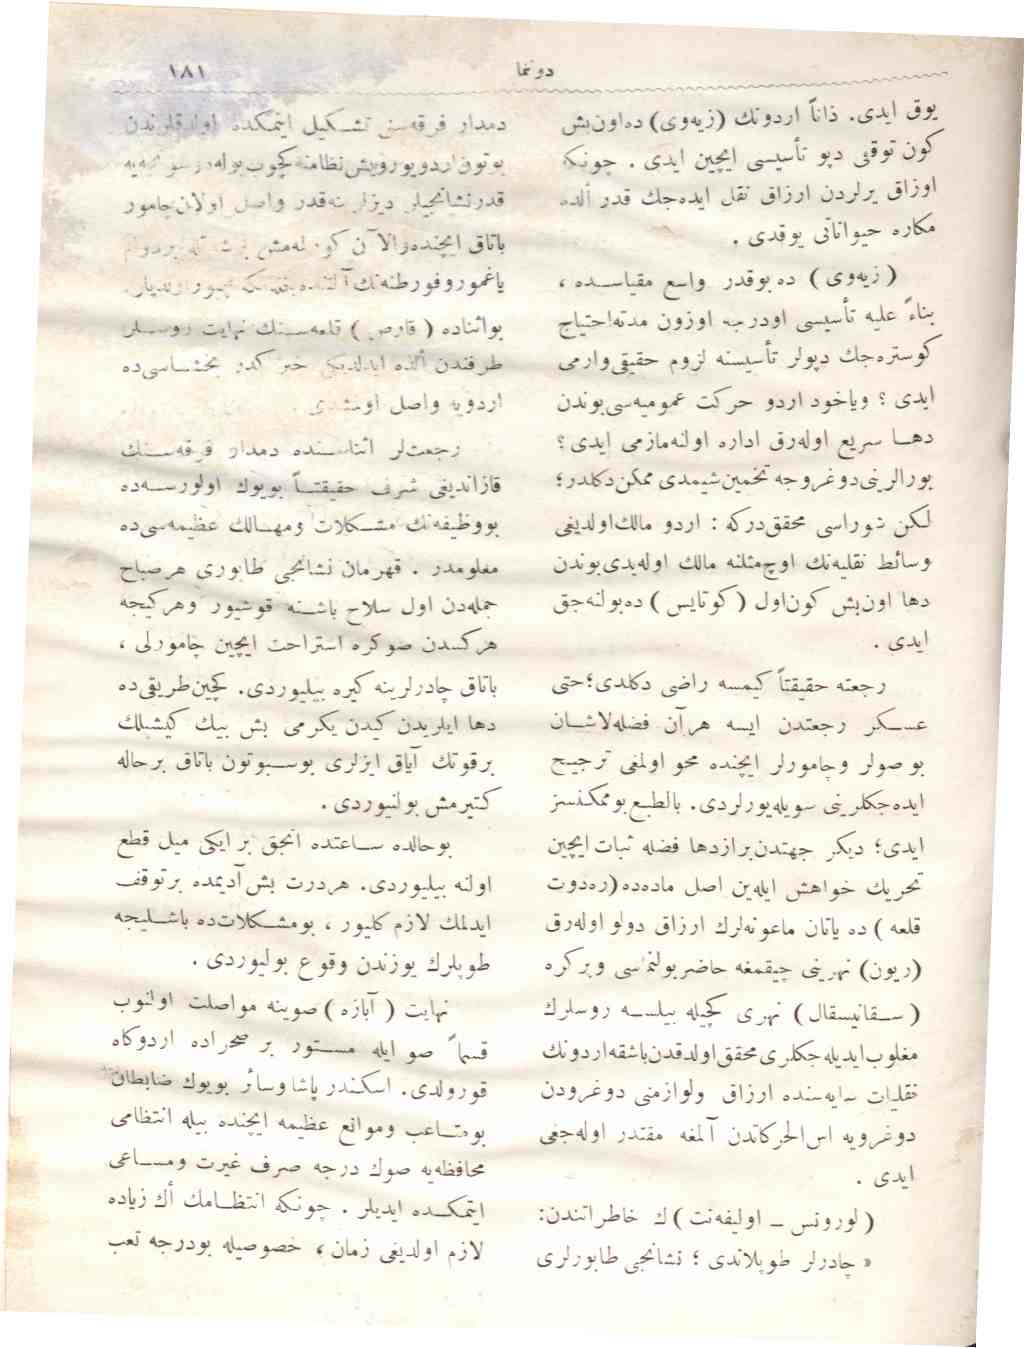 دونما
١٨١
يوق ايدى. ذاتاً اردونك (زيه‌وى) ده‌اون‌بش
كون توقفى دپو تأسيسى ايچين ايدى . چونكه
اوزاق يرلردن ارزاق نقل ايده‌جك قدر الده
مكاره حيواناتى يوقدى .
(زيه‌وى) ده بوقدر واسع مقياسـده ،
بناءً عليه تأسيسى اودرجه اوزون مدته‌احتياج
كوستره‌جك دپولر تأسيسنه لزوم حقيقى‌وارمى
ايدى ؟ وياخود اردو حركت عموميه‌سى‌بوندن
دهـا سريع اوله‌رق اداره اولنه‌مازمى ايدى؟
بورالرينى‌دوغروجه تخمين‌شيمدى ممكن‌دكلدر؛
لـكن شوراسى محقق‌دركه : اردو مالك‌اولديغى
وسائط نقليه‌نك اوچ‌مثلنه مالك اوله‌يدى‌بوندن
دها اون‌بش كون‌اول (كوتايس) ده‌بولنه‌جق
ايدى .
رجعته حقيقتاً كيمسه راضى دكلدى؛حتى
عسـكر رجعتدن ايسه هرآن فضله‌لاشـان
بو صولر وچامورلر ايچنده محو اولمغى ترجيح
ايده‌جكلرينى سويله‌يورلردى. بالطبع‌بوممكنسز
ايدى؛ ديكر جهتدن‌برازدها فضله ثبات ايچين
تحريك خواهش ايله‌ين اصل ماده‌ده(ره‌دوت
قلعه) ده ياتان ماعونه‌لرك ارزاق دولو اوله‌رق
(ريون) نهرينى چيقمغه حاضربولنماسى وبركره
(سـقانيسقال) نهرى كچيله بيلسـه روسلرك
مغلوب‌ايديله‌جكلرى‌محقق‌اولدقدن‌باشقه‌اردونك
نقليات سايه‌سنده ارزاق ولوازمنى دوغرودن
دوغرويه اس‌الحركاتدن آلمغه مقتدر اوله‌جغى
ايدى .
(لورونس ـ اوليفه‌نت)ك خاطراتندن:
« چادرلر طوپلاندى ؛ نشانجى طابورلرى
دمدار فرقه‌سنى تشـكيل ايتمكده
بوتون‌اردويورويش‌نظامنه
قدرنشانجيلر ديزلرينه‌قدر واصل اولان‌چامور
باتاق ايچنده
ياغمور
بواثناده (قارص) قلعه‌سـنك نهايت روسـلر
طرفندن الده ايدلديكى خبر
اردويه واصل اولمشدى .
رجعت‌لر اثناسـنده دمدار فرقه‌سـنك
قازانديغى شرف حقيقتـاً بويوك اولورسـه‌ده
بووظيفه‌نك مشـكلات ومهـالك عظيمه‌سى‌ده
معلومدر . قهرمان نشانجى طابورى هرصباح
جمله‌دن اول سلاح باشـنه قوشيور وهركيجه
هركسدن صوكره استراحت ايچين چامورلى ،
باتاق چادرلرينه كيره بيليوردى. كچين‌طريقى‌ده
دها ايلريدن كيدن يكرمى بش بيك كيشيلك
برقوتك آياق ايزلرى بوسـبوتون باتاق برحاله
كتيرمش بولنيوردى .
بوحالده سـاعتده انجق بر ايكى ميل قطع
اولنه بيليوردى. هردرت بش‌آديمده برتوقف
ايدلمك لازم كليور ، بومشـكلات‌ده باشـليجه
طوپلرك يوزندن وقوع بوليوردى .
نهايت (آبازه) صوينه مواصلت اولنوب
قسماً صو ايله مسـتور بر صحراده اردوكاه
قورولدى. اسكندر پاشا وسائر بويوك ضابطان
بومتـاعب وموانع عظيمه ايچنده بيله انتظامى
محافظه‌يه صوك درجه صرف غيرت ومسـاعى
ايتمكـده ايديلر . چونكه انتظـامك اك زياده
لازم اولديغى زمان ، خصوصيله بودرجه تعب